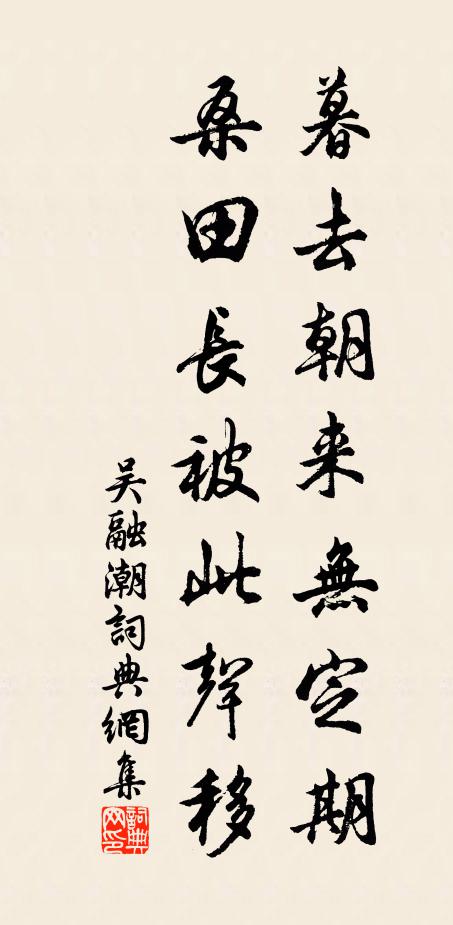 暮去朝来無定期
桑田長被此聲移
吴融潮詞典網集
詞典網印